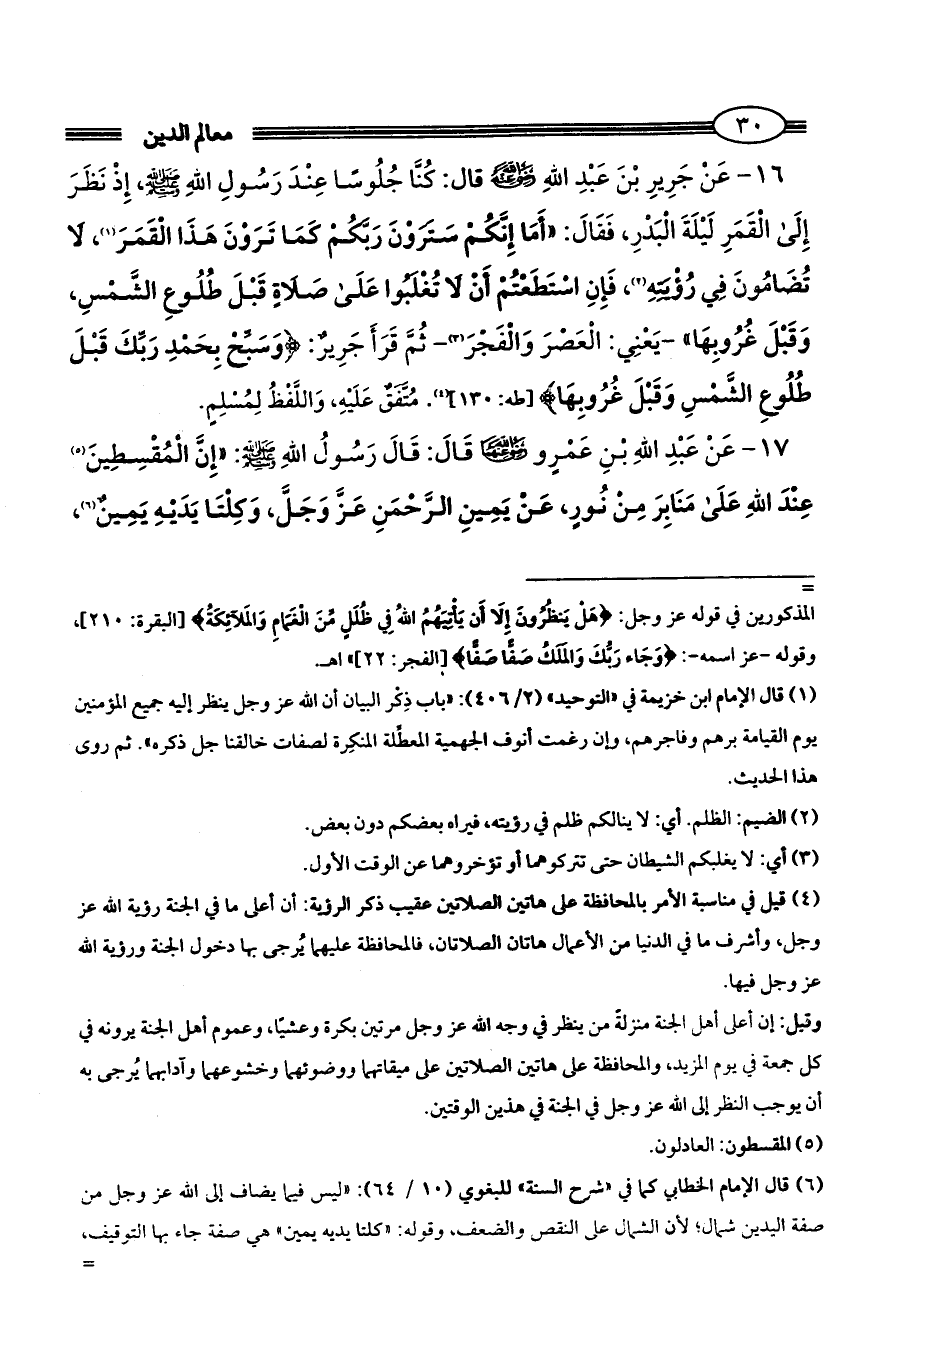 ٣٠ معالم الدين
١٦- عَنْ جَرِيرِ بْنِ عَبْدِ اللهِ رضي الله عنه قال: كُنَّا جُلُوسًا عِنْدَ رَسُولِ اللهِ ﷺ، إِذْ نَظَرَ
إِلَىٰ الْقَمَرِ لَيْلَةَ الْبَدْرِ، فَقَالَ: «أَمَا إِنَّكُمْ سَتَرَوْنَ رَبَّكُمْ كَمَا تَرَوْنَ هَذَا الْقَمَرَ(١)، لَا
تُضَامُونَ فِي رُؤْيَتِهِ(٢)، فَإِنِ اسْتَطَعْتُمْ أَنْ لَا تُغْلَبُوا عَلَىٰ صَلَاةٍ قَبْلَ طُلُوعِ الشَّمْسِ،
وَقَبْلَ غُرُوبِهَا» -يَعْنِي: الْعَصْرَ وَالْفَجْرَ(٣)- ثُمَّ قَرَأَ جَرِيرٌ: ﴿وَسَبِّحْ بِحَمْدِ رَبِّكَ قَبْلَ
طُلُوعِ الشَّمْسِ وَقَبْلَ غُرُوبِهَا﴾ [طه: ١٣٠](٤). مُتَّفَقٌ عَلَيْهِ، وَاللَّفْظُ لِمُسْلِمٍ.
١٧- عَنْ عَبْدِ اللهِ بْنِ عَمْرٍو رضي الله عنهما قَالَ: قَالَ رَسُولُ اللهِ ﷺ: «إِنَّ الْمُقْسِطِينَ(٥)
عِنْدَ اللهِ عَلَىٰ مَنَابِرَ مِنْ نُورٍ، عَنْ يَمِينِ الرَّحْمَنِ عَزَّ وَجَلَّ، وَكِلْتَا يَدَيْهِ يَمِينٌ(٦)،
=
المذكورين في قوله عز وجل: ﴿هَلْ يَنظُرُونَ إِلَّا أَن يَأْتِيَهُمُ اللهُ فِي ظُلَلٍ مِّنَ الْغَمَامِ وَالْمَلَآئِكَةُ﴾ [البقرة: ٢١٠]،
وقوله -عز اسمه-: ﴿وَجَاء رَبُّكَ وَالْمَلَكُ صَفًّا صَفًّا﴾ [الفجر: ٢٢]» اهـ.
(١) قال الإمام ابن خزيمة في «التوحيد» (٢/ ٤٠٦): «باب ذِكْر البيان أن الله عز وجل ينظر إليه جميع المؤمنين
يوم القيامة برهم وفاجرهم، وإن رغمت أنوف الجهمية المعطِّلة المنكِرة لصفات خالقنا جل ذكره». ثم روى
هذا الحديث.
(٢) الضيم: الظلم. أي: لا ينالكم ظلم في رؤيته، فيراه بعضكم دون بعض.
(٣) أي: لا يغلبكم الشيطان حتى تتركوهما أو تؤخروهما عن الوقت الأول.
(٤) قيل في مناسبة الأمر بالمحافظة على هاتين الصلاتين عقيب ذكر الرؤية: أن أعلى ما في الجنة رؤية الله عز
وجل، وأشرف ما في الدنيا من الأعمال هاتان الصلاتان، فالمحافظة عليهما يُرجى بها دخول الجنة ورؤية الله
عز وجل فيها.
وقيل: إن أعلى أهل الجنة منزلةً من ينظر في وجه الله عز وجل مرتين بكرة وعشيًا، وعموم أهل الجنة يرونه في
كل جمعة في يوم المزيد، والمحافظة على هاتين الصلاتين على ميقاتهما ووضوئهما وخشوعهما وآدابهما يُرجى به
أن يوجب النظر إلى الله عز وجل في الجنة في هذين الوقتين.
(٥) المقسطون: العادلون.
(٦) قال الإمام الخطابي كما في «شرح السنة» للبغوي (١٠ / ٦٤): «ليس فيما يضاف إلى الله عز وجل من
صفة اليدين شمال؛ لأن الشمال على النقص والضعف، وقوله: «كلتا يديه يمين» هي صفة جاء بها التوقيف،
=